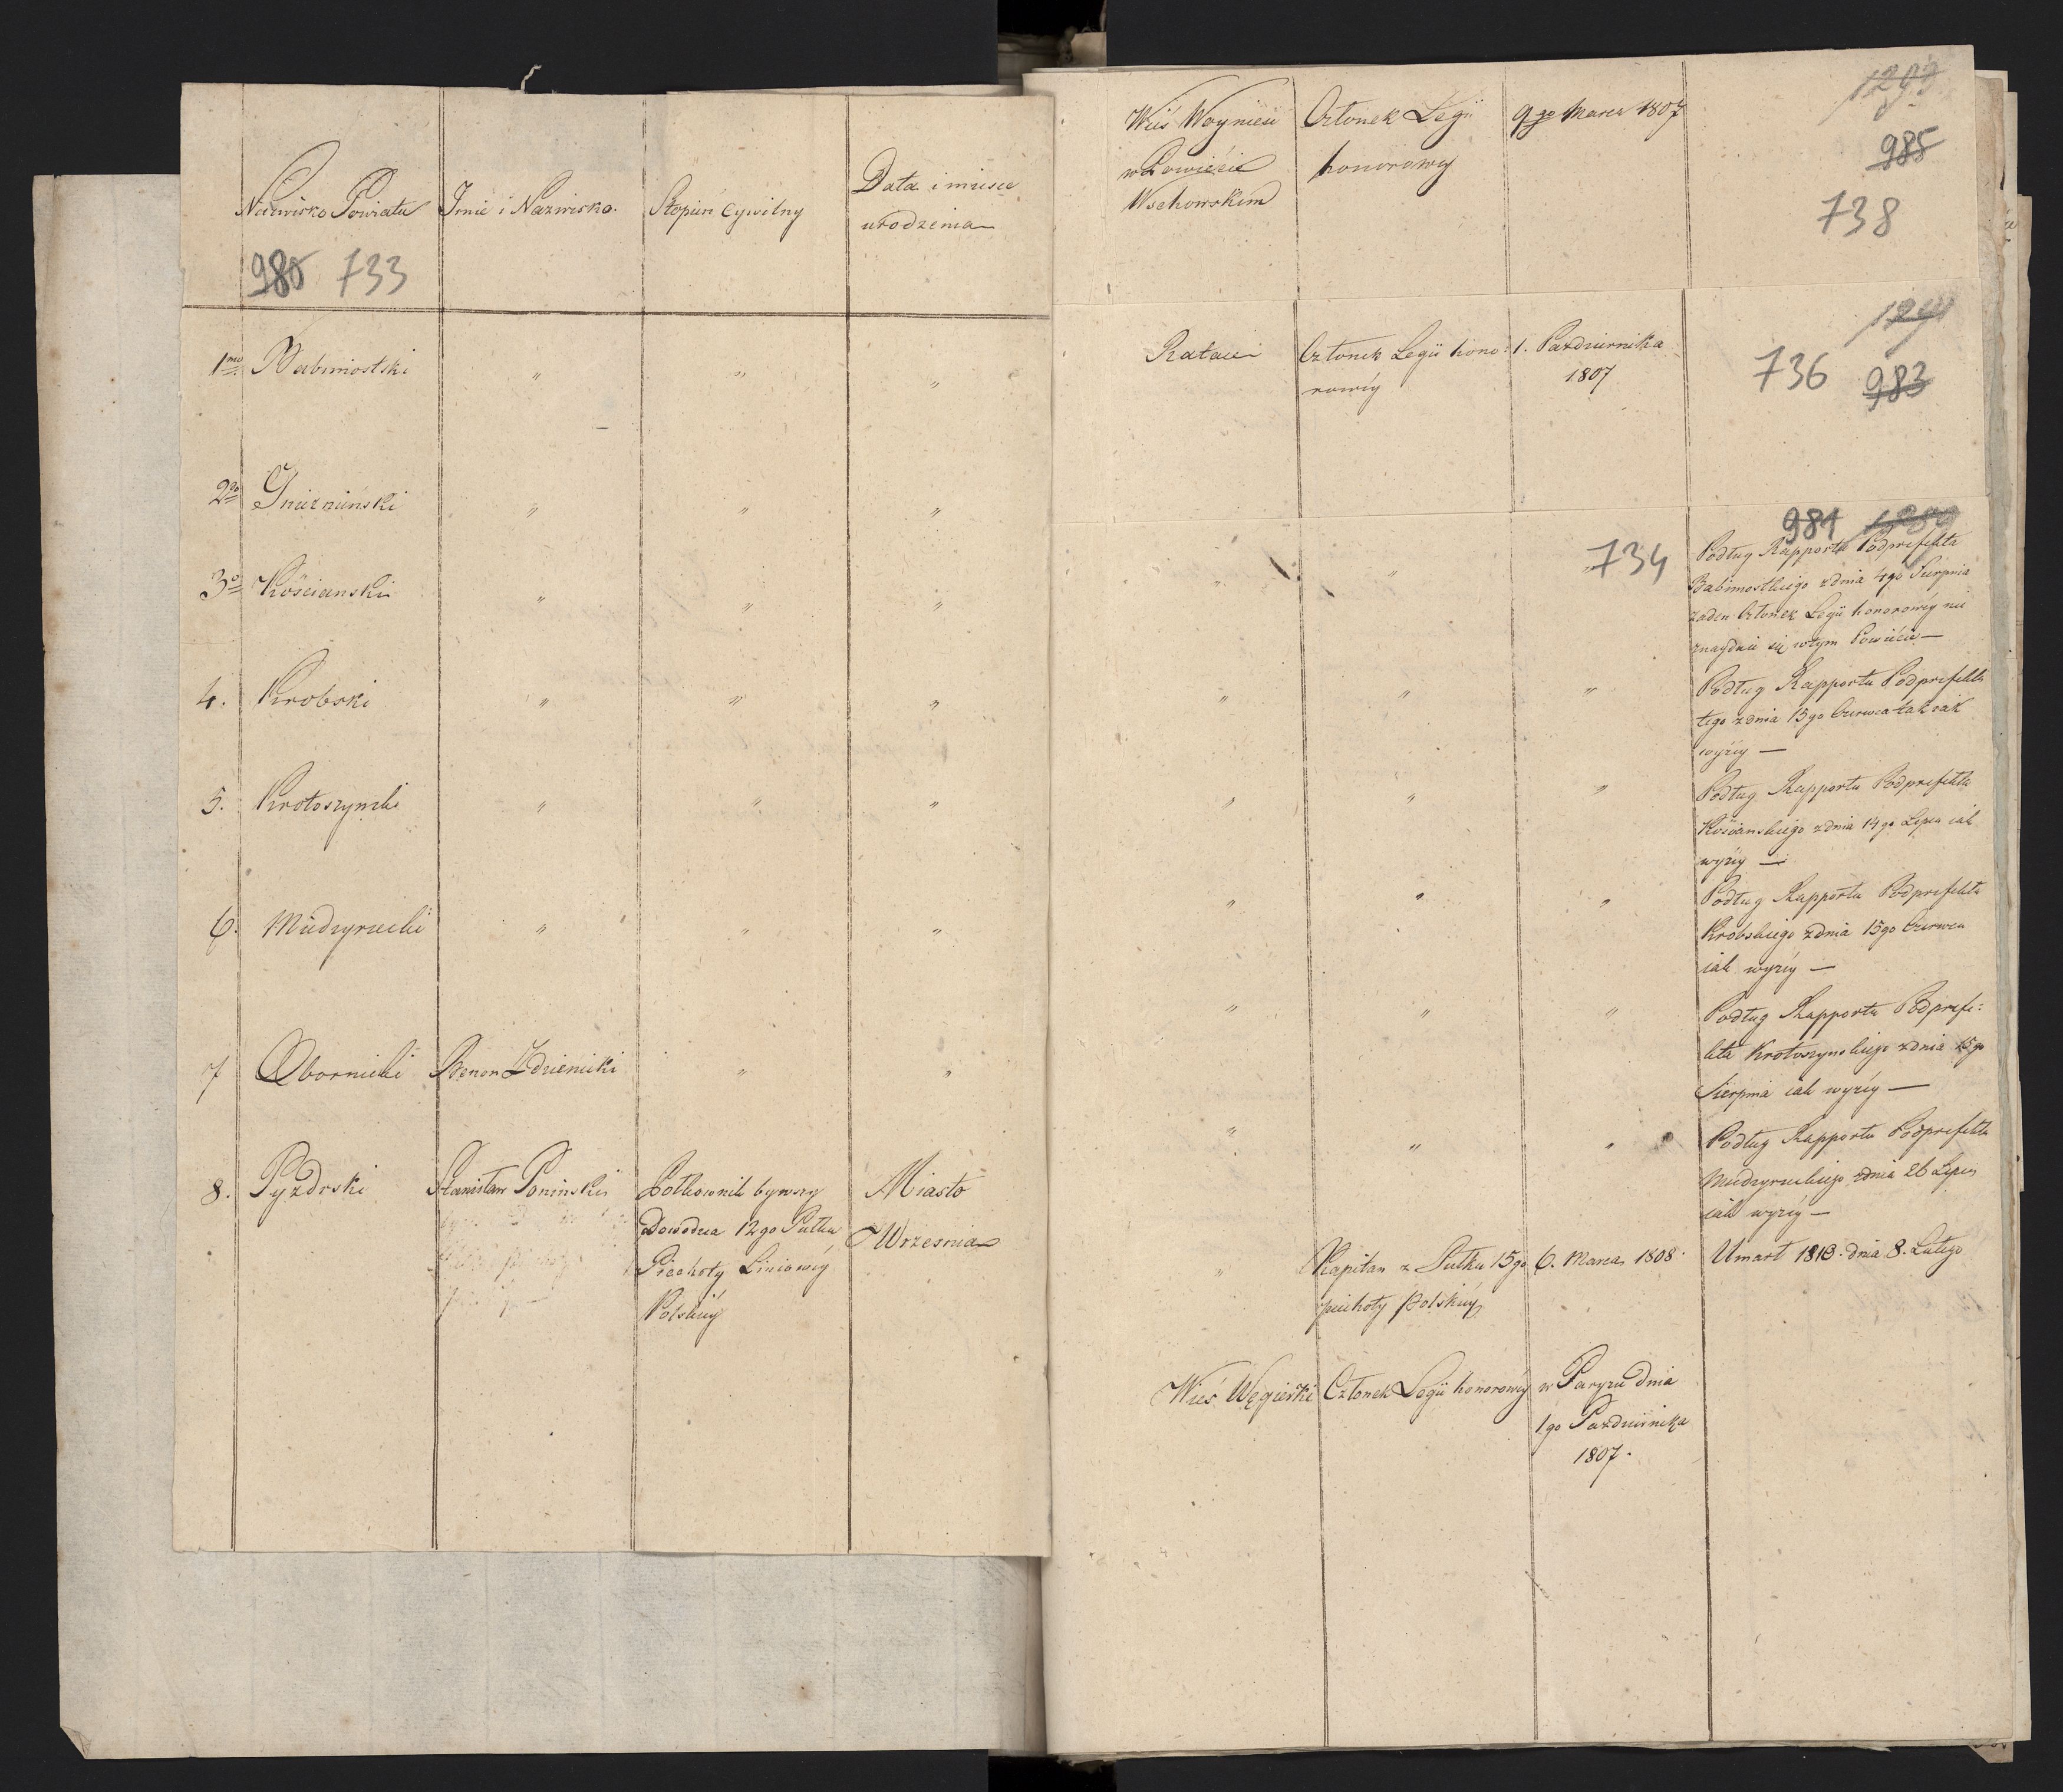 Nazwisko Powiatu
Imie i Nazwisko.
Stopień Cywilny
Data i miesce
urodzenia
980 733
1mo Babimostski " " "
2do Gnieznieński " " "
3o Kościanski " " "
4. Krobski " " "
5. Krotoszynski " " "
6. Miedzyrzecki " " "
7 Obornicki Benon Zdzienicki " "
8. Pyzdrski
Stanisław Poninski
Połkownik bywszy
Dowodzca 12go Pułku
Piechoty Liniowéy
Polskiéy
Miasto
Wrzesnia
Wieś Woynieść
w Powiećie
Wschowskim
Członek Legii
honorowey
9go Marca 1807
1293
985
738
Rataie
Członek Legii hono:
rowéy
1. Pazdziernika
1807
1291
736 983
981 1289
" " " 734
Podług Rapportu Podprefekta
Babimostkiego z dnia 4go Sierpnia
żaden Członek Legii honorowéy nie
znayduie się w tym Powiećie —
" " "
Podług Rapportu Podprefekta
tego z dnia 15go Czerwca tak iak
wyżéy —
" " "
Podług Rapportu Podprefekta
Kościanskiego z dnia 14go Lipca iak
wyżéy —
" " "
Podług Rapportu Podprefekta
Krobskiego z dnia 15go Czerwca
iak wyżéy —
" " "
Podług Rapportu Podprefe:
kta Krotoszynskiego z dnia 15go
Sierpnia iak wyżéy —
" " "
Podług Rapportu Podprefekta
Miedzyrzeckiego z dnia 26 Lipca
iak wyżéy —
"
Kapitan z Pułku 15go
piechoty Polskiéy
6. Marca 1808.
Umarł 1813. dnia 8. Lutego
Wieś Węgierki
Członek Legii honorowéy
w Paryzu dnia
1go Pazdziernika
1807.